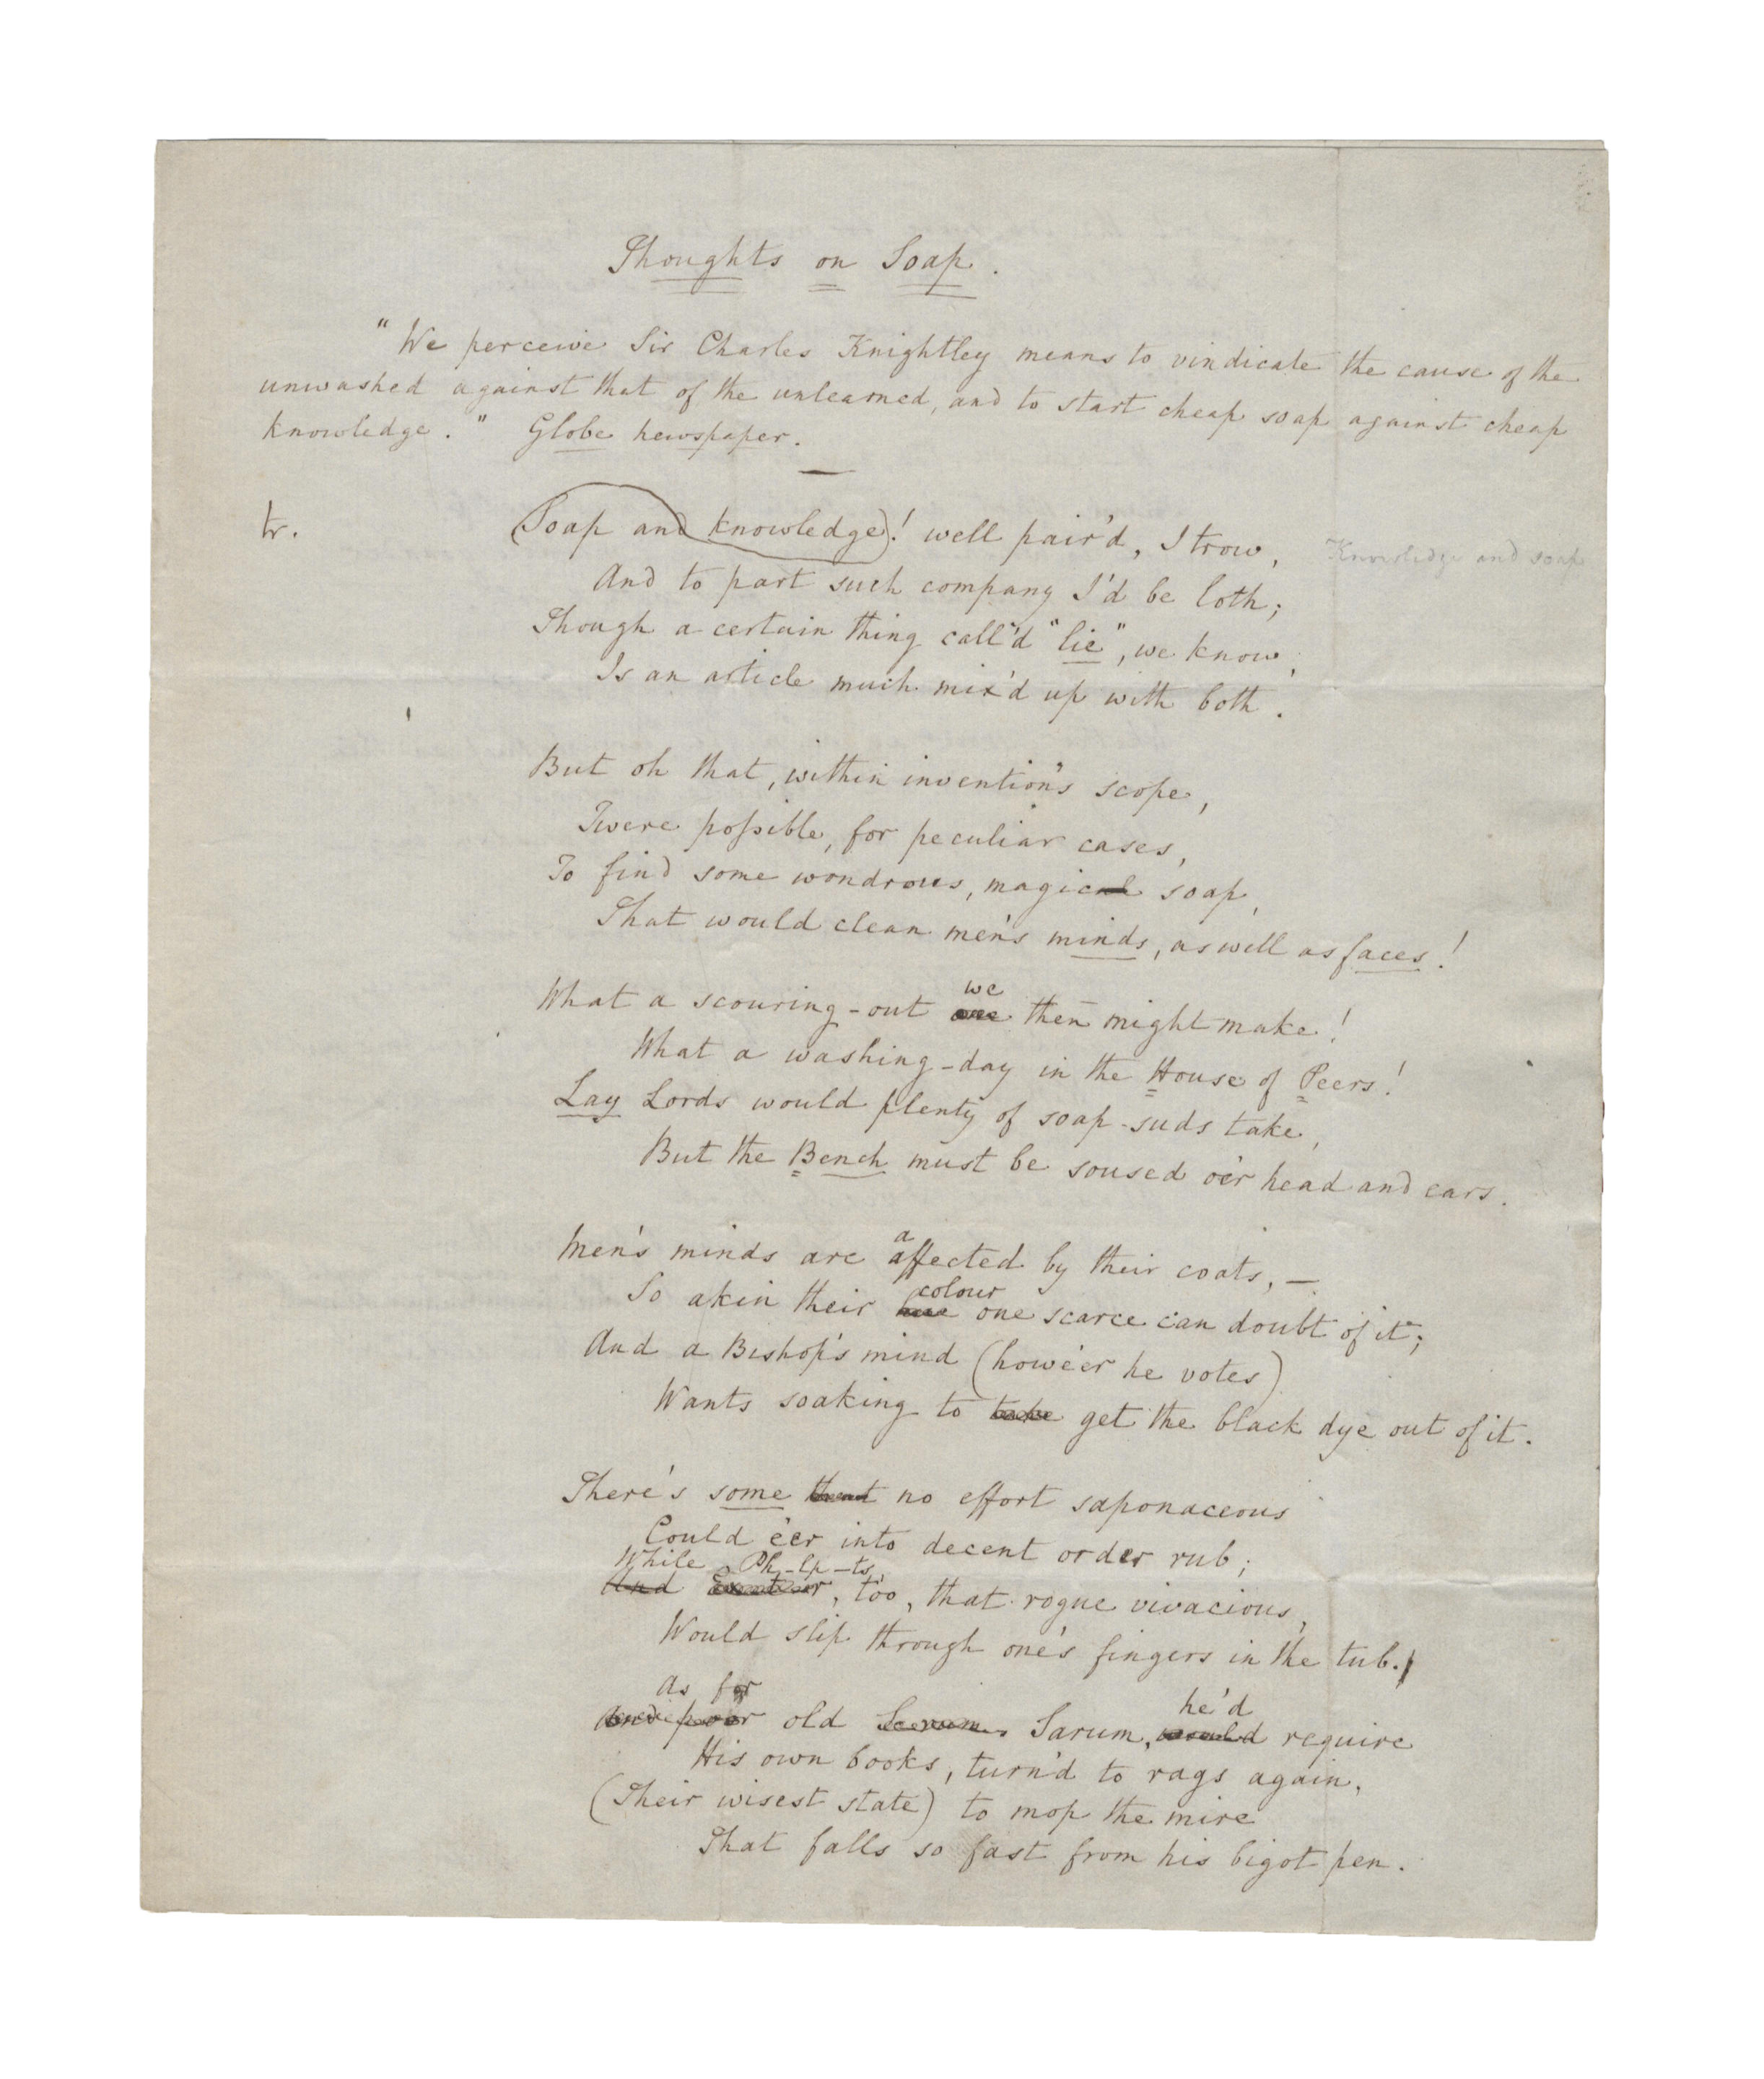 Thoughts on Soap.
"We perceive Sir Charles Knightley means to vindicate the cause of the
unwashed against that of the unlearned, and to start cheap soap against cheap
knowledge." Globe newspaper.
tr. Soap and knowledge! well pair'd, I trow, Knowledge and soap
And to part such company I'd be loth;
Though a certain thing call'd "lie", we know,
Is an article much mix'd up with both.
But oh that, within invention's scope,
Twere possible, for peculiar cases,
To find some wondrous, magical soap,
That would clean men's minds, as well as faces!
we
What a scouring-out then might make!
What a washing-day in the House of Peers!
Lay Lords would plenty of soap-suds take,
But the Bench must be soused o'er head and ears.
a
Men's minds are affected by their coats, —
colour
So akin their hue one scarce can doubt of it;
And a Bishop's mind (howe'er he votes)
Wants soaking to take get the black dye out of it.
There's some that no effort saponaceous
Could e'er into decent order rub;
While Ph-lp-ts
And Exeter, too, that rogue vivacious,
Would slip through one's fingers in the tub.
As for he'd
And poor old Sarum, would require
His own books, turn'd to rags again,
(Their wisest state) to mop the mire
That falls so fast from his bigot pen.